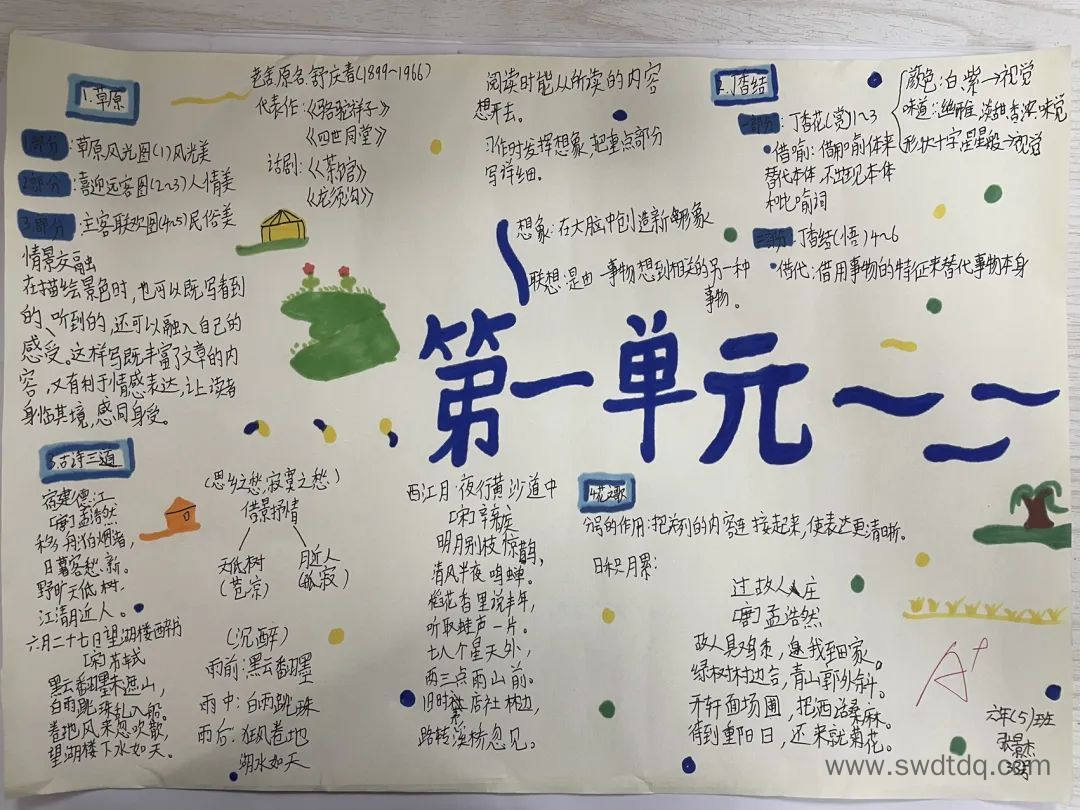 第一单元
1.草原
1部分:草原风光图(1)风光美
2部分:喜迎远客图(2~3)人情美
3.部分:主客联欢图(4~5)民俗美
情景交融
在描绘景色时,也可以既写看到
的、听到的,还可以融入自己的
感受。这样写既丰富了文章的内
容,又有利于情感表达,让读者
身临其境,感同身受。
老舍,原名,舒庆春(1899~1966)
代表作:《骆驼祥子》
《四世同堂》
话剧:《茶馆》
《龙须沟》
阅读时能从所读的内容
想开去。
习作时发挥想象,把重点部分
写详细。
想象:在大脑中创造新的形象
联想:是由一事物想到相关的另一种
事物。
2.丁香结
一部分:丁香花(赏)1~3
颜色:白,紫→视觉
味道:幽雅,淡甜香浓,味觉
形状十字星星般→视觉
借喻:借用喻体来
替代本体,不出现本体
和比喻词
二部分:丁香结(悟)4~6
借代:借用事物的特征来替代事物本身
3.古诗三首
宿建德江
[唐]孟浩然
移舟泊烟渚,
日暮客愁新。
野旷天低树,
江清月近人。
六月二十七日望湖楼醉书
[宋]苏轼
黑云翻墨未遮山,
白雨跳珠乱入船。
卷地风来忽吹散,
望湖楼下水如天。
(思乡之愁,寂寞之愁)
借景抒情
天低树
(苍凉)
月近人
(孤寂)
(沉醉)
雨前:黑云翻墨
雨中:白雨跳珠
雨后:狂风卷地
湖水如天
西江月·夜行黄沙道中
[宋]辛弃疾
明月别枝惊鹊,
清风半夜鸣蝉。
稻花香里说丰年,
听取蛙声一片。
七八个星天外,
两三点雨山前。
旧时茅店社林边,
路转溪桥忽见。
4花之歌
分号的作用:把并列的内容连接起来,使表达更清晰。
日积月累:
过故人庄
[唐]孟浩然
故人具鸡黍,邀我至田家。
绿树村边合,青山郭外斜。
开轩面场圃,把酒话桑麻。
待到重阳日,还来就菊花。
A+
六年(5)班
张景杰
www.swdtdq.com